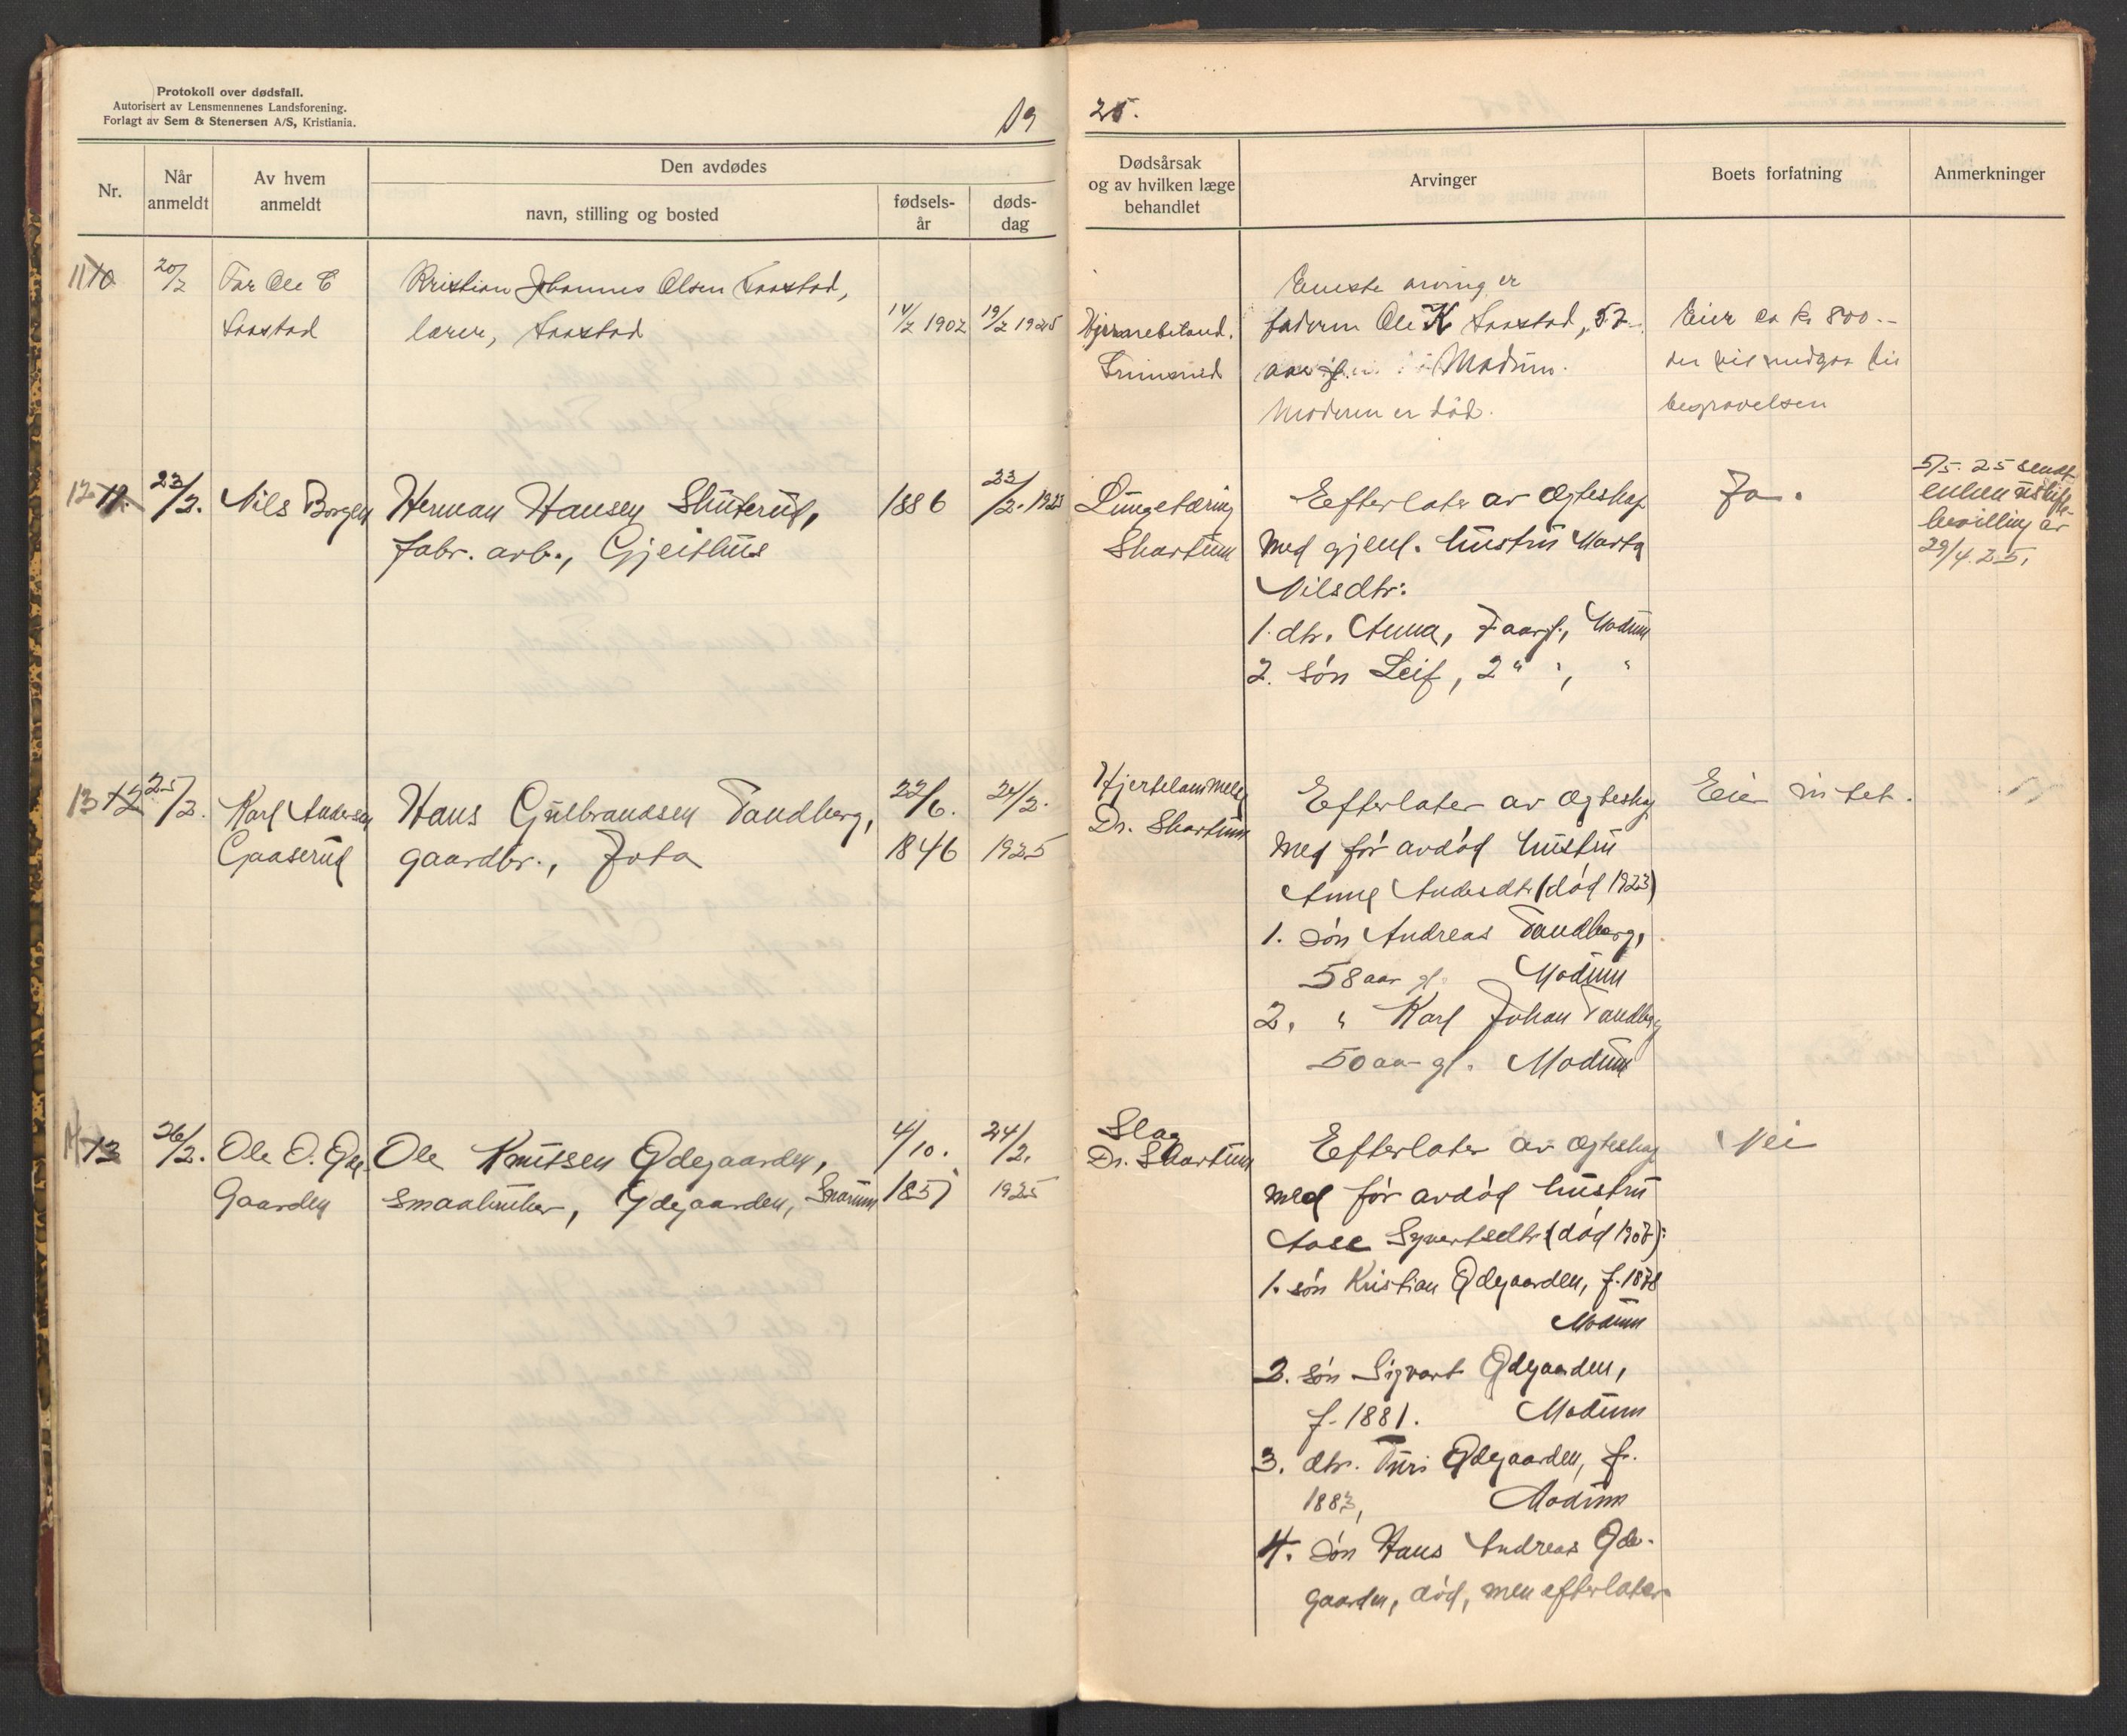 Protokoll over dødsfall.
Autorisert av Lensmennenes Landsforening.
Forlagt av Sem & Stenersen A/S, Kristiania.
19
25.
Nr.
Når anmeldt
Av hvem anmeldt
Den avdødes
navn, stilling og bosted
fødsels-år
døds-dag
Dødsårsak og av hvilken læge behandlet
Arvinger
Boets forfatning
Anmerkninger
11 10
20/2
Far Ole
Kristian Johannes Olsen
lærer,
14/2 1902
19/2 1925
Eneste arving er
faderen Ole K
Modum.
Moderen er død.
Eier ca kr 800.-
der vil medgaa til
begravelsen
12 11.
23/2.
Nils Borgen
Herman Hansen Skuterud,
fabr. arb., Gjeithus
1886
23/2. 1925
Lungetæring
Skartum
Eefterlater av Ægteskap
med gjenl. hustru Marta
Nilsdtr:
1. dtr. Anna, 7 aar gl., Modum
2. søn Leif, 2 " ", "
Ja.
5/5. 25 sendt
enken uskifte-
bevilling av
29/4. 25.
13 12
25/2.
Karl Andersen
Gaaserud
Hans Gulbrandsen Tandberg,
gaardbr., Jota
22/6.
1846
24/2.
1925
Hjertelammelse
Dr. Skartum
Eefterlater av Ægteskap
med før avdød hustru
Anne Andersdtr (død 1923)
1. søn Andreas Tandberg,
58 aar gl. Modum
2. " Karl Johan Tandberg
50 aar gl. Modum
Eier intet.
14 13
26/2.
Ole O. Øde-
gaarden
Ole Knutsen Ødegaarden,
smaabruker, Ødegaarden, Snarum
4/10.
1851
24/2.
1925
Slag
Dr. Skartum
Eefterlater av Ægteskap
med før avdød hustru
Aase Syvertsdtr (død 1907):
1. søn Kristian Ødegaarden, f. 1878
Modum
2. søn Sigvart Ødegaarden,
f. 1881. Modum
3. dtr. Turi Ødegaarden, f.
1883, Modum
4. søn Hans Andreas Øde-
gaarden, død, men efterlater
Nei